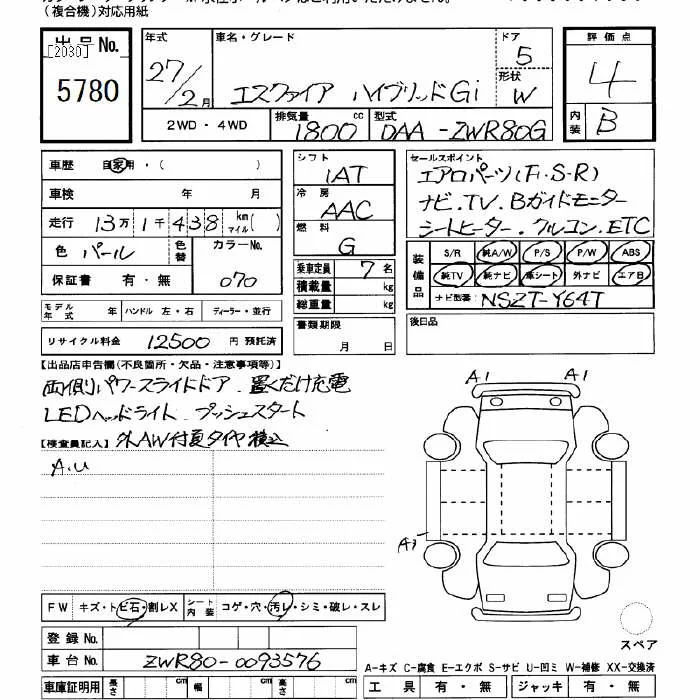 (複合機)対応用紙
出品No.
[2030]
5780
年式
27/2月
車名・グレード
エスクァイア ハイブリッドGi
ドア
5
形状
W
評価点
4
内装
B
2WD・4WD
排気量
1800cc
型式
DAA-ZWR80G
車歴 自家用・( )
車検 年 月
走行 13万1千438 km マイル( )
色 パール
色替
カラーNo.
070
保証書 有・無
モデル年式 年
ハンドル 左・右
ディーラー・並行
リサイクル料金 12500 円 預託済
シフト
IAT
冷房
AAC
燃料
G
乗車定員 7名
積載量 kg
総重量 kg
書類期限
月 日
セールスポイント
エアロパーツ(F.S.R)
ナビ.TV.Bガイドモニター
シートヒーター.クルコン.ETC
装備品
S/R 純A/W P/S P/W ABS
純TV 純ナビ 革シート 外ナビ エアB
ナビ型番: NSZT-Y64T
後日品
【出品店申告欄(不良箇所・欠品・注意事項等)】
両側パワースライドドア.置くだけ充電
LEDヘッドライト.プッシュスタート
外AW付夏タイヤ積込
【検査員記入】
A.U
A1 A1
A1
FW キズ・トビ石・割レX
シート内装 コゲ・穴・汚レ・シミ・破レ・スレ
登録No.
車台No. ZWR80-0093576
車庫証明用 長さ cm 幅 cm 高さ cm
スペア
A-キズ C-腐食 E-エクボ S-サビ U-凹ミ W-補修 XX-交換済
工具 有・無 ジャッキ 有・無